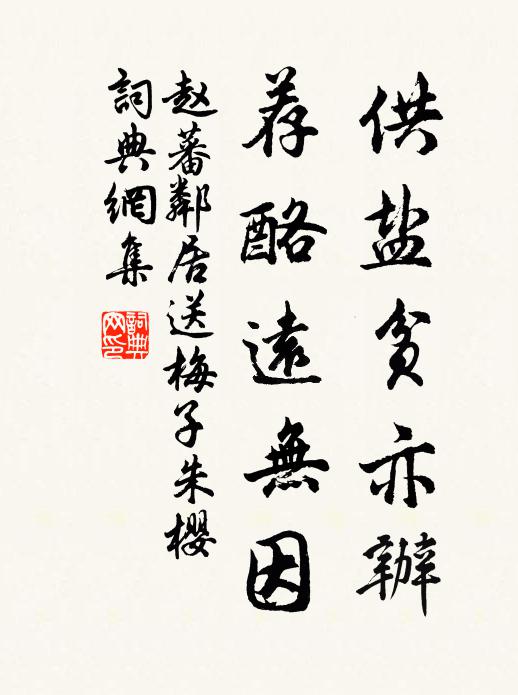 供盐贫亦辦
荐酪遠無因
赵蕃鄰居送梅子朱櫻
詞典網集
詞典网印